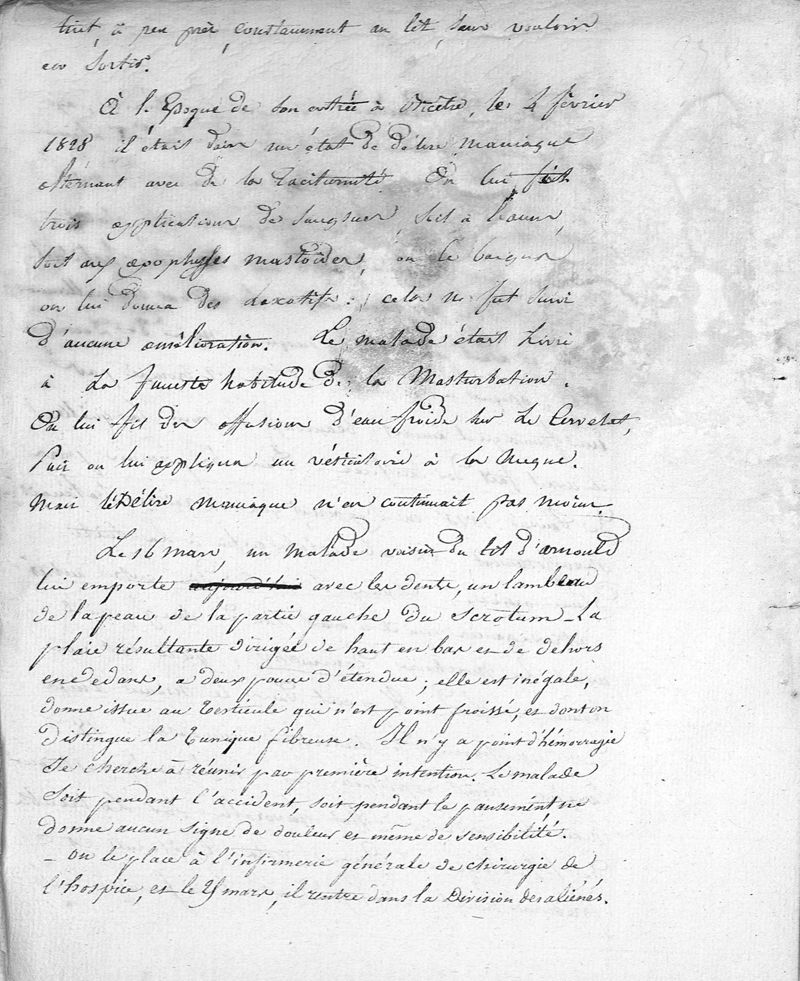 tint, à peu près, constamment au lit, sans vouloir
en sortir.
À l'Epoque de son entrée à Bicêtre, les 4 février
1828 il était dans un état de délire maniaque
alternant avec de la taciturnité. On lui fit
trois applications de sangsues, soit à l'anus,
soit aux apophyses mastoïdes, on le baigna
on lui donna des laxatifs : cela ne fut suivi
d'aucune amélioration. Le malade était livré
à la funeste habitude de la Masturbation.
On lui fit des affusions d'eau froide sur le Cervelet,
Puis on lui appliqua un vésicatoire à la Nuque.
Mais le Délire maniaque n'en continuait pas moins.
Le 16 mars, un malade voisin du lit d'arnould
lui emporte aujourd'hui avec les dents, un lambeau
de la peau de la partie gauche du scrotum _ La
plaie résultante dirigée de haut en bas et de dehors
en dedans, a deux pouces d'étendue ; elle est inégale,
donne issue au testicule qui n'est point froissé, et dont on
distingue la tunique fibreuse. Il n'y a point d'hémorragie
Je cherche à réunir par première intention. Le malade
soit pendant l'accident, soit pendant le pansement ne
donne aucun signe de douleur et même de sensibilité.
_ on le place à l'infirmerie générale de chirurgie de
l'hospice, et le mars, il rentre dans la Division des aliénés.